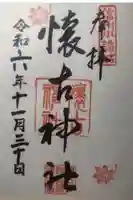 奉拝
懐古神社
令和六年十一月三十日